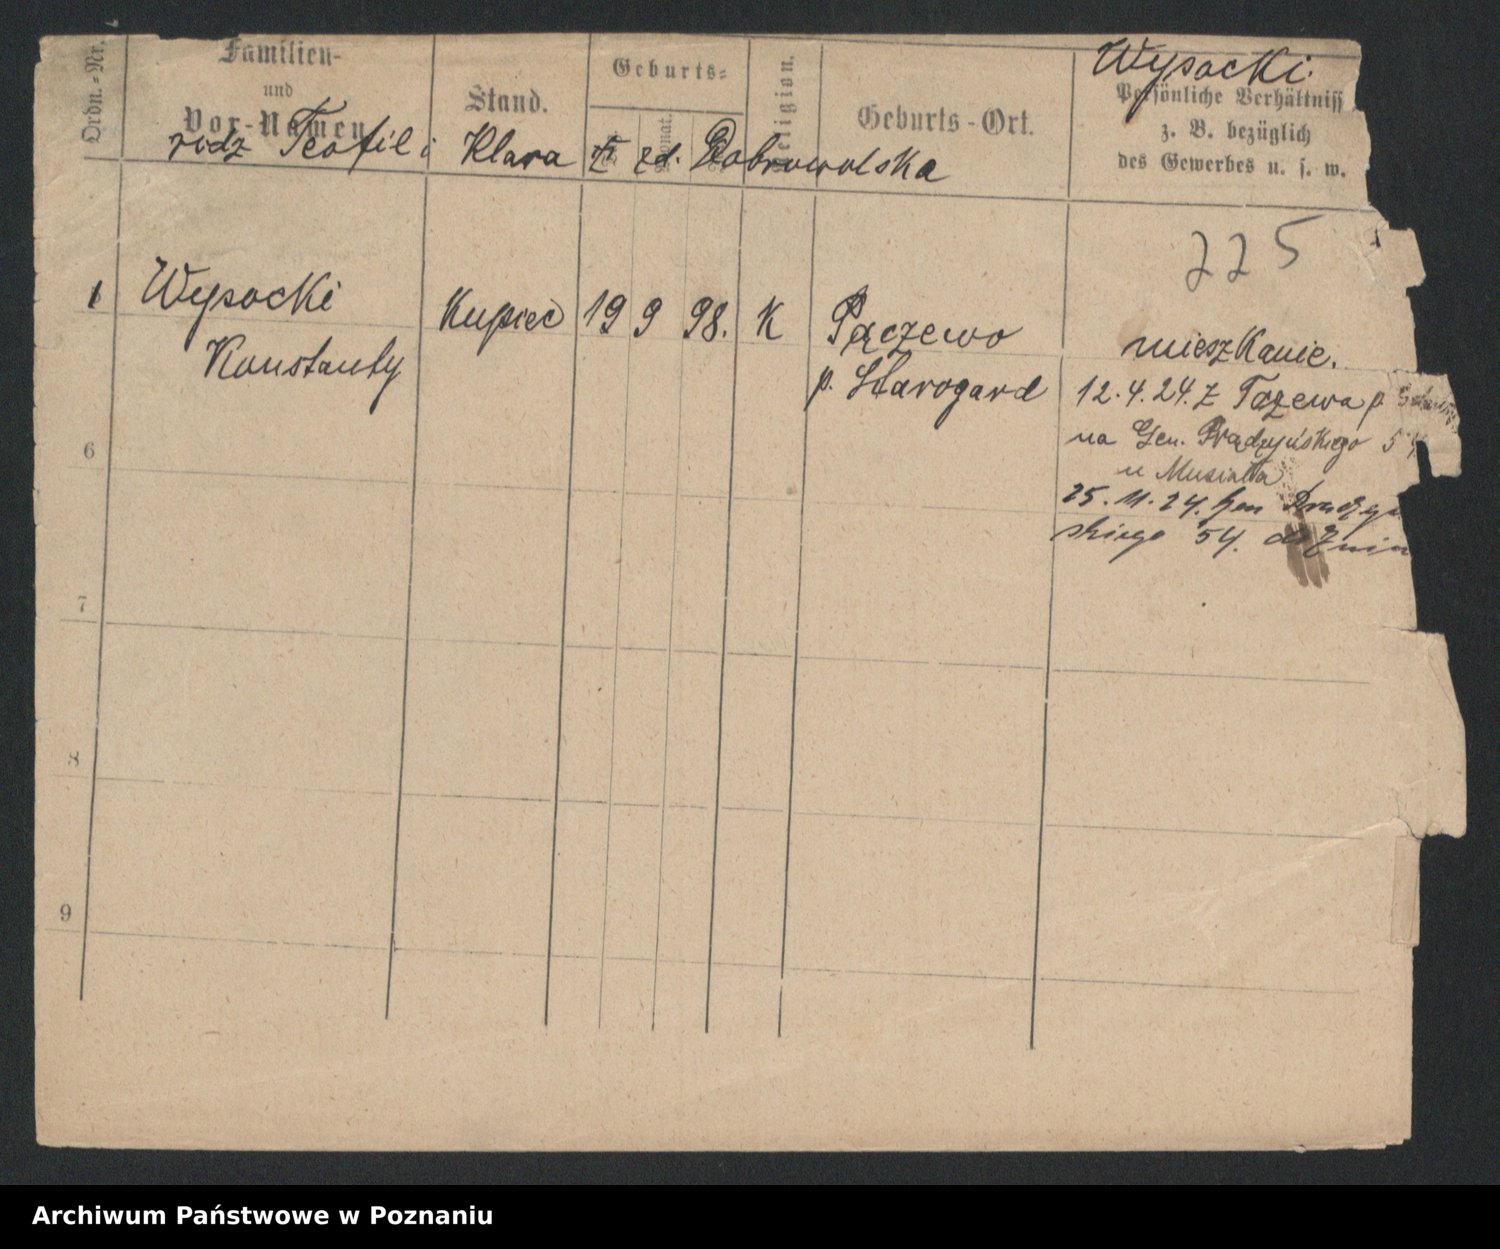 Ordn.-Nr.
Familien-
und
Vor-Namen
Stand.
Geburts-
Monat.
Religion.
Geburts-Ort.
Wysocki.
Persönliche Verhältniss
z. B. bezüglich
des Gewerbes u. s. w.
rodz Teofil i Klara zd. Dobrowolska
225
1 Wysocki Kupiec 19 9 98. K Pączewo
Konstanty p. Starogard
mieszkanie.
12.4.24. z p.
na Gen. Prądzyńskiego 54
u Musiała
25.11.24. Gen Prądzyń
skiego 54. do Żnin
6
7
8
9
Archiwum Państwowe w Poznaniu